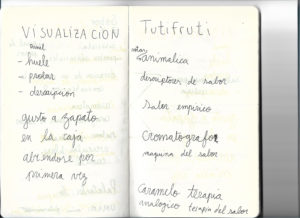 VISUALIZACION
- huele
- probar
- descripcion
gusto a zapato
en la caja
abriendose por
primera vez
Tutifruti
animalica
descriptores de sabor
Sabor empirico
Cromatografo
maquina del sabor
Caramelo terapia
analogico terapia del sabor